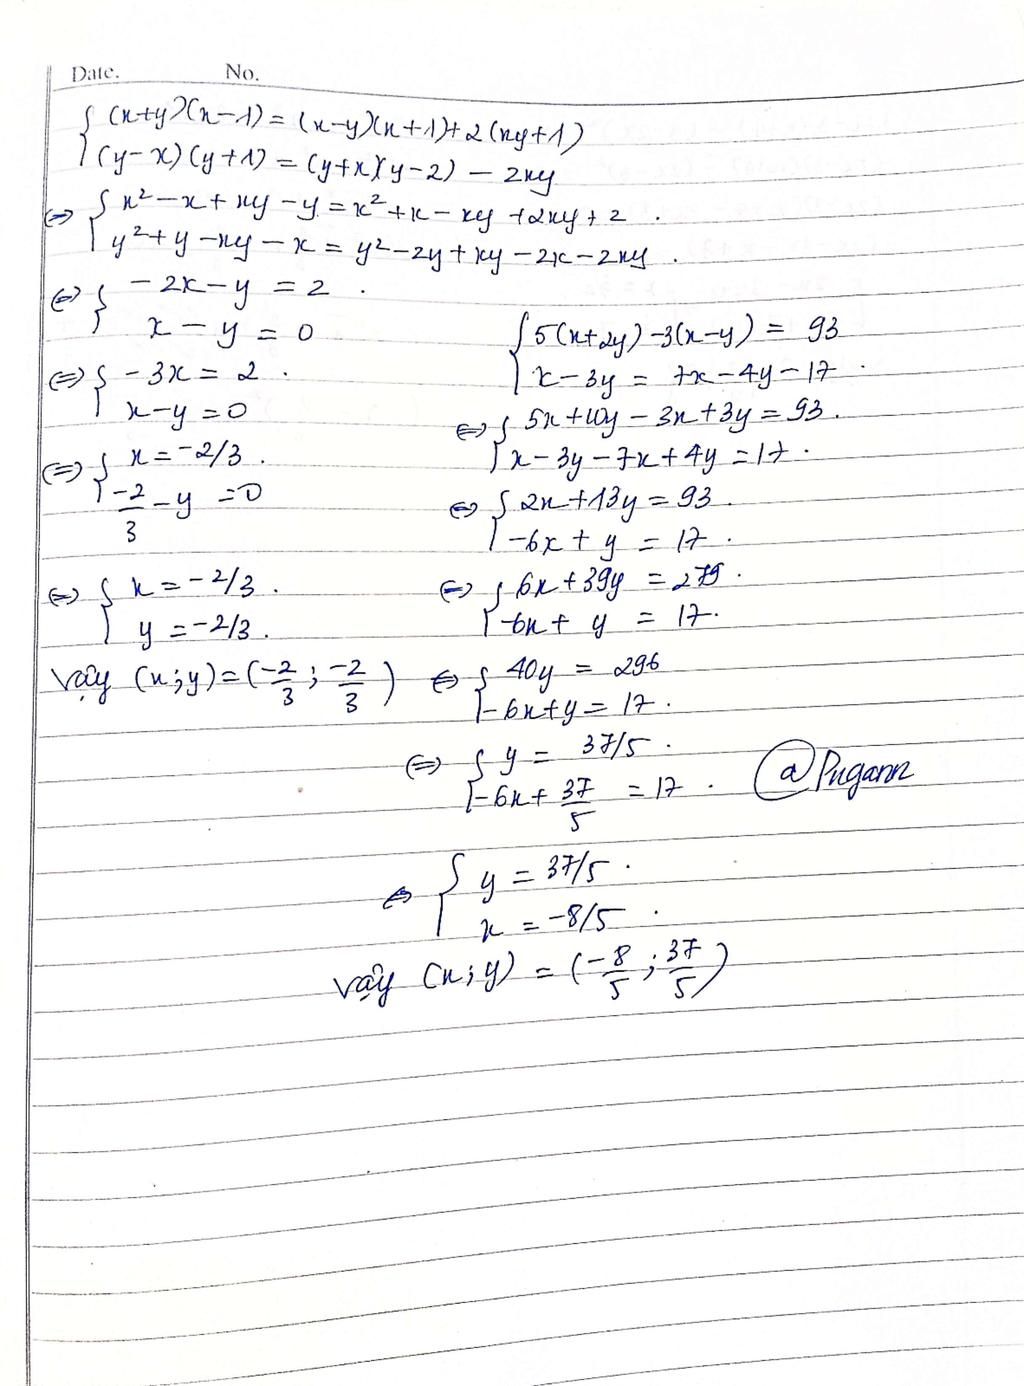 Date. No.
{ (x+y)(x-1) = (x-y)(x+1)+2(xy+1)
(y-x)(y+1) = (y+x)(y-2) - 2xy
⇔ { x² - x + xy - y = x² + x - xy + 2xy + 2.
y² + y - xy - x = y² - 2y + xy - 2x - 2xy.
⇔ { - 2x - y = 2.
x - y = 0
⇔ { - 3x = 2.
x - y = 0
⇔ { x = -2/3.
-2/3 - y = 0
⇔ { x = -2/3.
y = -2/3.
Vậy (x;y) = (-2/3; -2/3)
{ 5(x+2y) - 3(x-y) = 93
x - 3y = 7x - 4y - 17.
⇔ { 5x + 10y - 3x + 3y = 93.
x - 3y - 7x + 4y = 17.
⇔ { 2x + 13y = 93.
-6x + y = 17.
⇔ { 6x + 39y = 279.
-6x + y = 17.
⇔ { 40y = 296
-6x + y = 17.
⇔ { y = 37/5.
-6x + 37/5 = 17.
@Pugann
⇔ { y = 37/5.
x = -8/5.
Vậy (x;y) = (-8/5; 37/5)